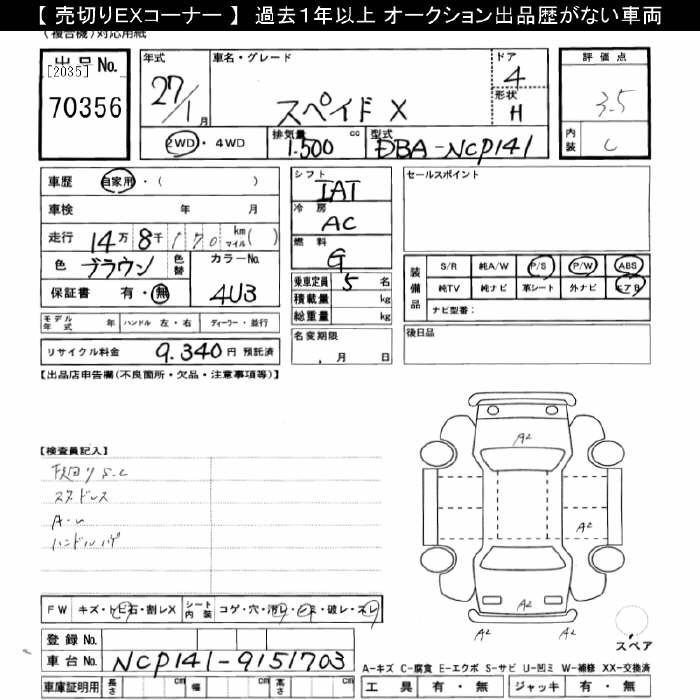 【 売切りEXコーナー 】 過去１年以上 オークション出品歴がない車両
(複合機)対応用紙
出品No.
[2035]
70356
年式
27/1月
車名・グレード
スペイド X
ドア
4
形状
H
評価点
3.5
内装
C
2WD・4WD
排気量 cc
1.500
型式
DBA-NCP141
車歴 自家用・( )
車検 年 月
走行 14万 8千 170 km マイル( )
色 ブラウン 色替 カラーNo.
4U3
保証書 有・無
シフト
IAT
冷房
AC
燃料
G
乗車定員 5 名
積載量 kg
総重量 kg
名変期限
月 日
セールスポイント
装備品
S/R 純A/W P/S P/W ABS
純TV 純ナビ 革シート 外ナビ エアB
ナビ型番:
後日品
モデル年式 年 ハンドル 左・右 ディーラー・並行
リサイクル料金 9.340 円 預託済
【出品店申告欄(不良箇所・欠品・注意事項等)】
【検査員記入】
下廻り S-C
スタドレス
A-U
ハンドルハゲ
A2
A2
A2
A2
A2
スペア
FW キズ・トビ石・割レX シート内装 コゲ・穴・汚レ・シミ・破レ・スレ
登録No.
車台No. NCP141-9151703
車庫証明用 長さ cm 幅 cm 高さ cm
A-キズ C-腐食 E-エクボ S-サビ U-凹ミ W-補修 XX-交換済
工具 有・無 ジャッキ 有・無